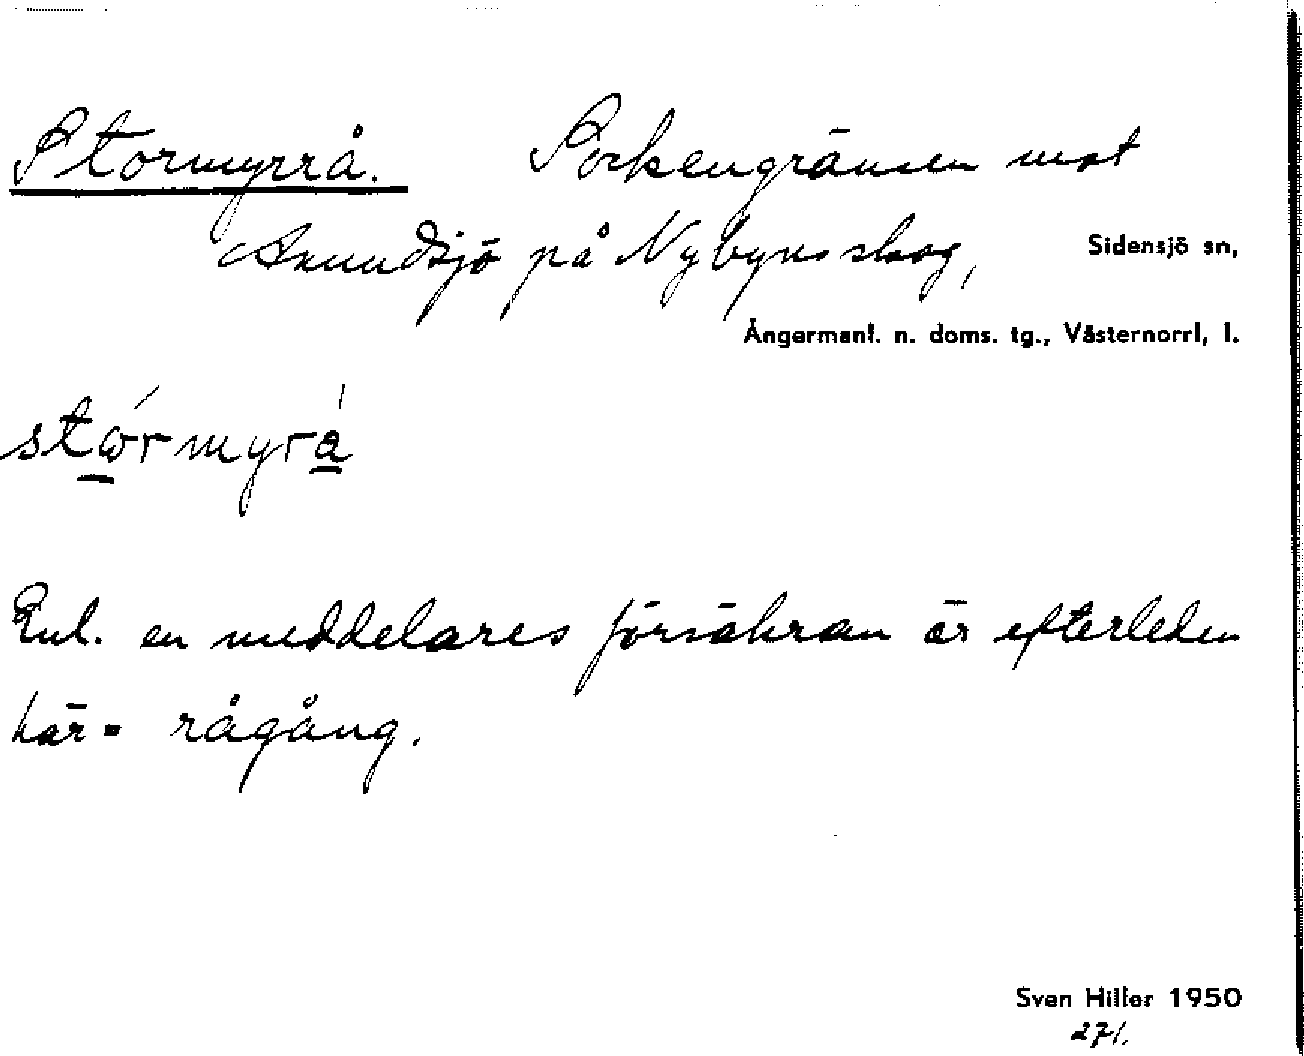 Stormyrrå. Sockengränsen mot
Anundsjö på Nybyns skog,
Sidensjö sn,
Ångermanl. n. doms. tg., Västernorrl, l.
stórmyrá
Enl. en meddelares försäkran är efterleden
här = rågång.
Sven Hiller 1950
271.